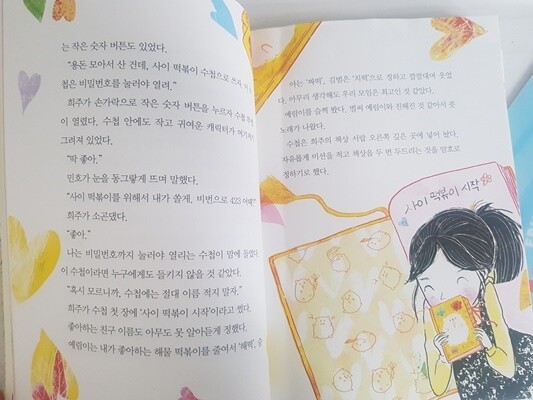 는 작은 숫자 버튼도 있었다.
"용돈 모아서 산 건데, 사이 떡볶이 수첩으로 쓰자. 이 수
첩은 비밀번호를 눌러야 열려."
희주가 손가락으로 작은 숫자 버튼을 누르자 수첩
이 열렸다. 수첩 안에도 작고 귀여운 캐릭터가 여기저기
그려져 있었다.
"딱 좋아."
민호가 눈을 동그랗게 뜨며 말했다.
"사이 떡볶이를 위해서 내가 쏠게. 비번으로 4223 어때?"
희주가 소곤댔다.
"좋아."
나는 비밀번호까지 눌러야 열리는 수첩이 맘에 들었다.
이 수첩이라면 누구에게도 들키지 않을 것 같았다.
"혹시 모르니까, 수첩에는 절대 이름 적지 말자."
희주가 수첩 첫 장에 '사이 떡볶이 시작'이라고 썼다.
좋아하는 친구 이름도 아무도 못 알아듣게 정했다.
예림이는 내가 좋아하는 해물 떡볶이를 줄여서 '해떡', 승
아는 '짜떡', 김범은 '치떡'으로 정하고 깔깔대며 웃었
다. 아무리 생각해도 우리 모임은 최고인 것 같았다.
예림이를 슬쩍 봤다. 벌써 예림이와 친해진 것 같아서 콧
노래가 나왔다.
수첩은 희주의 책상 서랍 오른쪽 깊은 곳에 넣어 놨다.
자유롭게 미션을 적고 책상을 두 번 두드리는 것을 암호로
정하기로 했다.
사이 떡볶이 시작